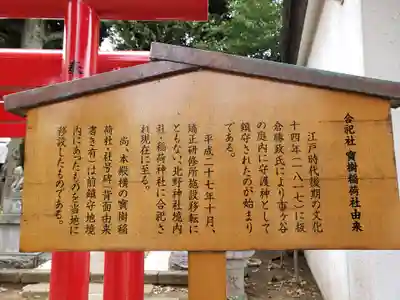 合祀社 寶樹稲荷社由来
江戸時代後期の文化
十四年(一八一七)に板
倉勝政氏により市ヶ谷
の庭内に守護神として
鎮守されたのが始まり
である。
平成二十七年十月、
矯正研修所施設移転に
ともない、北野神社境内
社、稲荷神社に合祀さ
れ現在に至る。
尚、本殿横の寶樹稲
荷社・社号碑(背面由来
書き有)は前鎮守地境
内にあったものを当地に
移設したものである。